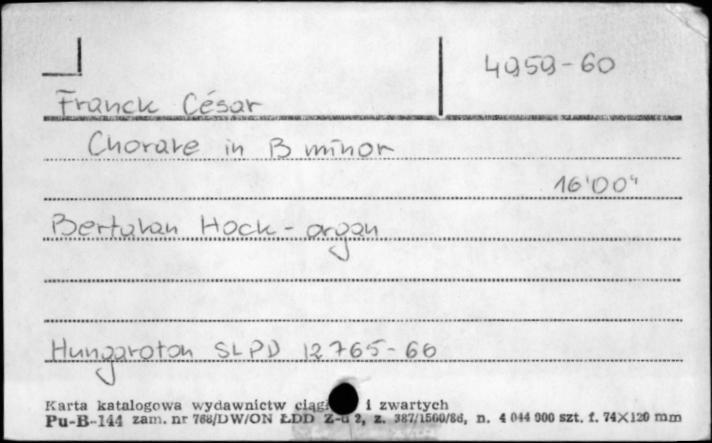 4959-60
Franck César
Chorale in B minor
16'00"
Bertalan Hock - organ
Hungaroton SLPD 12765-66
Karta katalogowa wydawnictw ciągł i zwartych
Pu-B-144 zam. nr 768/DW/ON ŁDD Z-d 2, z. 387/1500/86, n. 4 044 000 szt. f. 74×120 mm